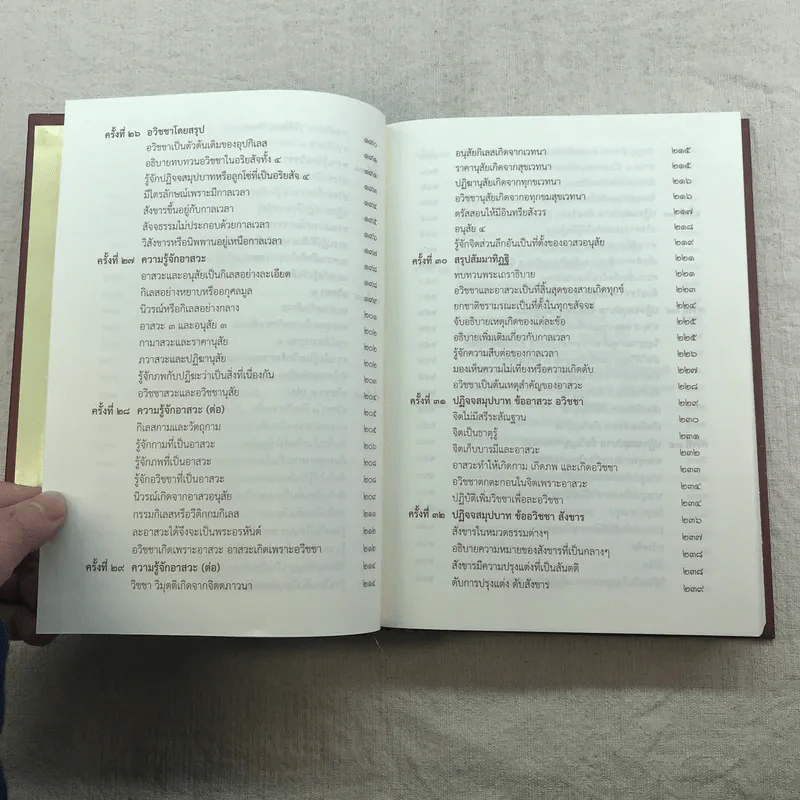 ครั้งที่ ๒๖ อวิชชาโดยสรุป ๑๙๐
อวิชชาเป็นตัวต้นเดิมของอุปกิเลส ๑๙๑
อธิบายทบทวนอวิชชาในอริยสัจทั้ง ๔ ๑๙๑
รู้จักปฏิจจสมุปบาทหรือลูกโซ่ที่เป็นอริยสัจ ๔ ๑๙๒
มีไตรลักษณ์เพราะมีกาลเวลา ๑๙๔
สังขารขึ้นอยู่กับกาลเวลา ๑๙๕
สัจจธรรมไม่ประกอบด้วยกาลเวลา ๑๙๖
วิสังขารหรือนิพพานอยู่เหนือกาลเวลา ๑๙๗
ครั้งที่ ๒๗ ความรู้จักอาสวะ ๑๙๘
อาสวะและอนุสัยเป็นกิเลสอย่างละเอียด ๑๙๘
กิเลสอย่างหยาบหรืออกุศลมูล ๑๙๙
นิวรณ์หรือกิเลสอย่างกลาง ๒๐๑
อาสวะ ๓ และอนุสัย ๓ ๒๐๒
กามาสวะและราคานุสัย ๒๐๒
ภวาสวะและปฏิฆานุสัย ๒๐๒
รู้จักภพกับปฏิฆะว่าเป็นสิ่งที่เนื่องกัน ๒๐๓
อวิชชาสวะและอวิชชานุสัย ๒๐๔
ครั้งที่ ๒๘ ความรู้จักอาสวะ (ต่อ) ๒๐๕
กิเลสกามและวัตถุกาม ๒๐๕
รู้จักกามที่เป็นอาสวะ ๒๐๖
รู้จักภพที่เป็นอาสวะ ๒๐๘
รู้จักอวิชชาที่เป็นอาสวะ ๒๐๘
นิวรณ์เกิดจากอาสวอนุสัย ๒๐๙
กรรมกิเลสหรือวีติกกมกิเลส ๒๑๑
ละอาสวะได้จึงจะเป็นพระอรหันต์ ๒๑๒
อวิชชาเกิดเพราะอาสวะ อาสวะเกิดเพราะอวิชชา ๒๑๒
ครั้งที่ ๒๙ ความรู้จักอาสวะ (ต่อ) ๒๑๔
วิชชา วิมุตติเกิดจากจิตตภาวนา ๒๑๔
อนุสัยกิเลสเกิดจากเวทนา ๒๑๕
ราคานุสัยเกิดจากสุขเวทนา ๒๑๕
ปฏิฆานุสัยเกิดจากทุกขเวทนา ๒๑๖
อวิชชานุสัยเกิดจากอทุกขมสุขเวทนา ๒๑๖
ตรัสสอนให้มีอินทรียสังวร ๒๑๗
อนุสัย ๔ ๒๑๘
รู้จักจิตส่วนลึกอันเป็นที่ตั้งของอาสวอนุสัย ๒๑๙
ครั้งที่ ๓๐ สรุปสัมมาทิฏฐิ ๒๒๑
ทบทวนพระเถราธิบาย ๒๒๑
อวิชชาและอาสวะเป็นที่สิ้นสุดของสายเกิดทุกข์ ๒๒๓
ยกชาติชรามรณะเป็นที่ตั้งในทุกขสัจจะ ๒๒๔
จับอธิบายเหตุเกิดของแต่ละข้อ ๒๒๕
อธิบายเพิ่มเติมเกี่ยวกับกาลเวลา ๒๒๕
รู้จักความสืบต่อของกาลเวลา ๒๒๖
มองเห็นความไม่เที่ยงหรือความเกิดดับ ๒๒๗
อวิชชาเป็นต้นเหตุสำคัญของอาสวะ ๒๒๘
ครั้งที่ ๓๑ ปฏิจจสมุปบาท ข้ออาสวะ อวิชชา ๒๒๙
จิตไม่มีสรีระสัณฐาน ๒๓๐
จิตเป็นธาตุรู้ ๒๓๑
จิตเก็บบารมีและอาสวะ ๒๓๒
อาสวะทำให้เกิดกาม เกิดภพ และเกิดอวิชชา ๒๓๓
อวิชชาตกตะกอนในจิตเพราะอาสวะ ๒๓๔
ปฏิบัติเพิ่มวิชชาเพื่อละอวิชชา ๒๓๔
ครั้งที่ ๓๒ ปฏิจจสมุปบาท ข้ออวิชชา สังขาร ๒๓๖
สังขารในหมวดธรรมต่างๆ ๒๓๗
อธิบายความหมายของสังขารที่เป็นกลางๆ ๒๓๘
สังขารมีความปรุงแต่งที่เป็นสันตติ ๒๓๘
ดับการปรุงแต่ง ดับสังขาร ๒๓๙